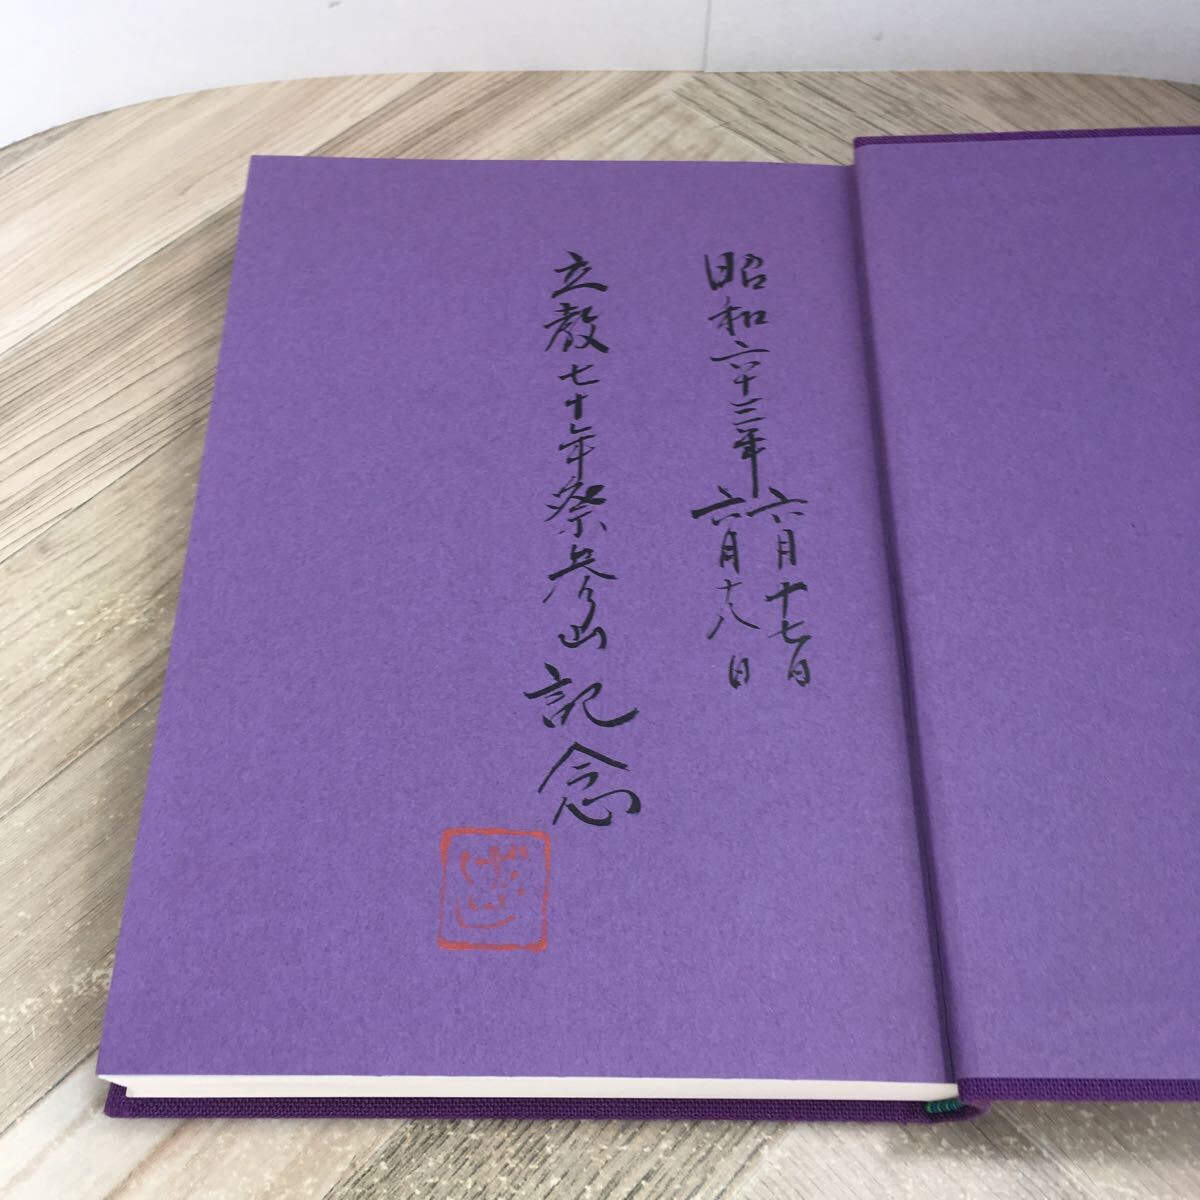 昭和六十三年六月十七日
六月十八日
立教七十年祭参山記念